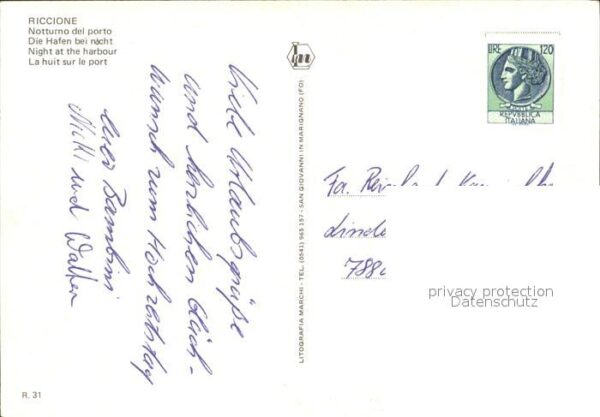 RICCIONE
Notturno del porto
Die Hafen bei nacht
Night at the harbour
La huit sur le port
Viele Urlaubsgrüße
und herzlichen Glück-
wunsch zum Hochzeitstag
Eure Bambini
Micki und Walter
R. 31
LITOGRAFIA MARCHI - TEL. (0541) 965 157 - SAN GIOVANNI IN MARIGNANO (FO)
LIRE 120
REPVBBLICA
ITALIANA
Fa.
Linde
788
privacy protection
Datenschutz